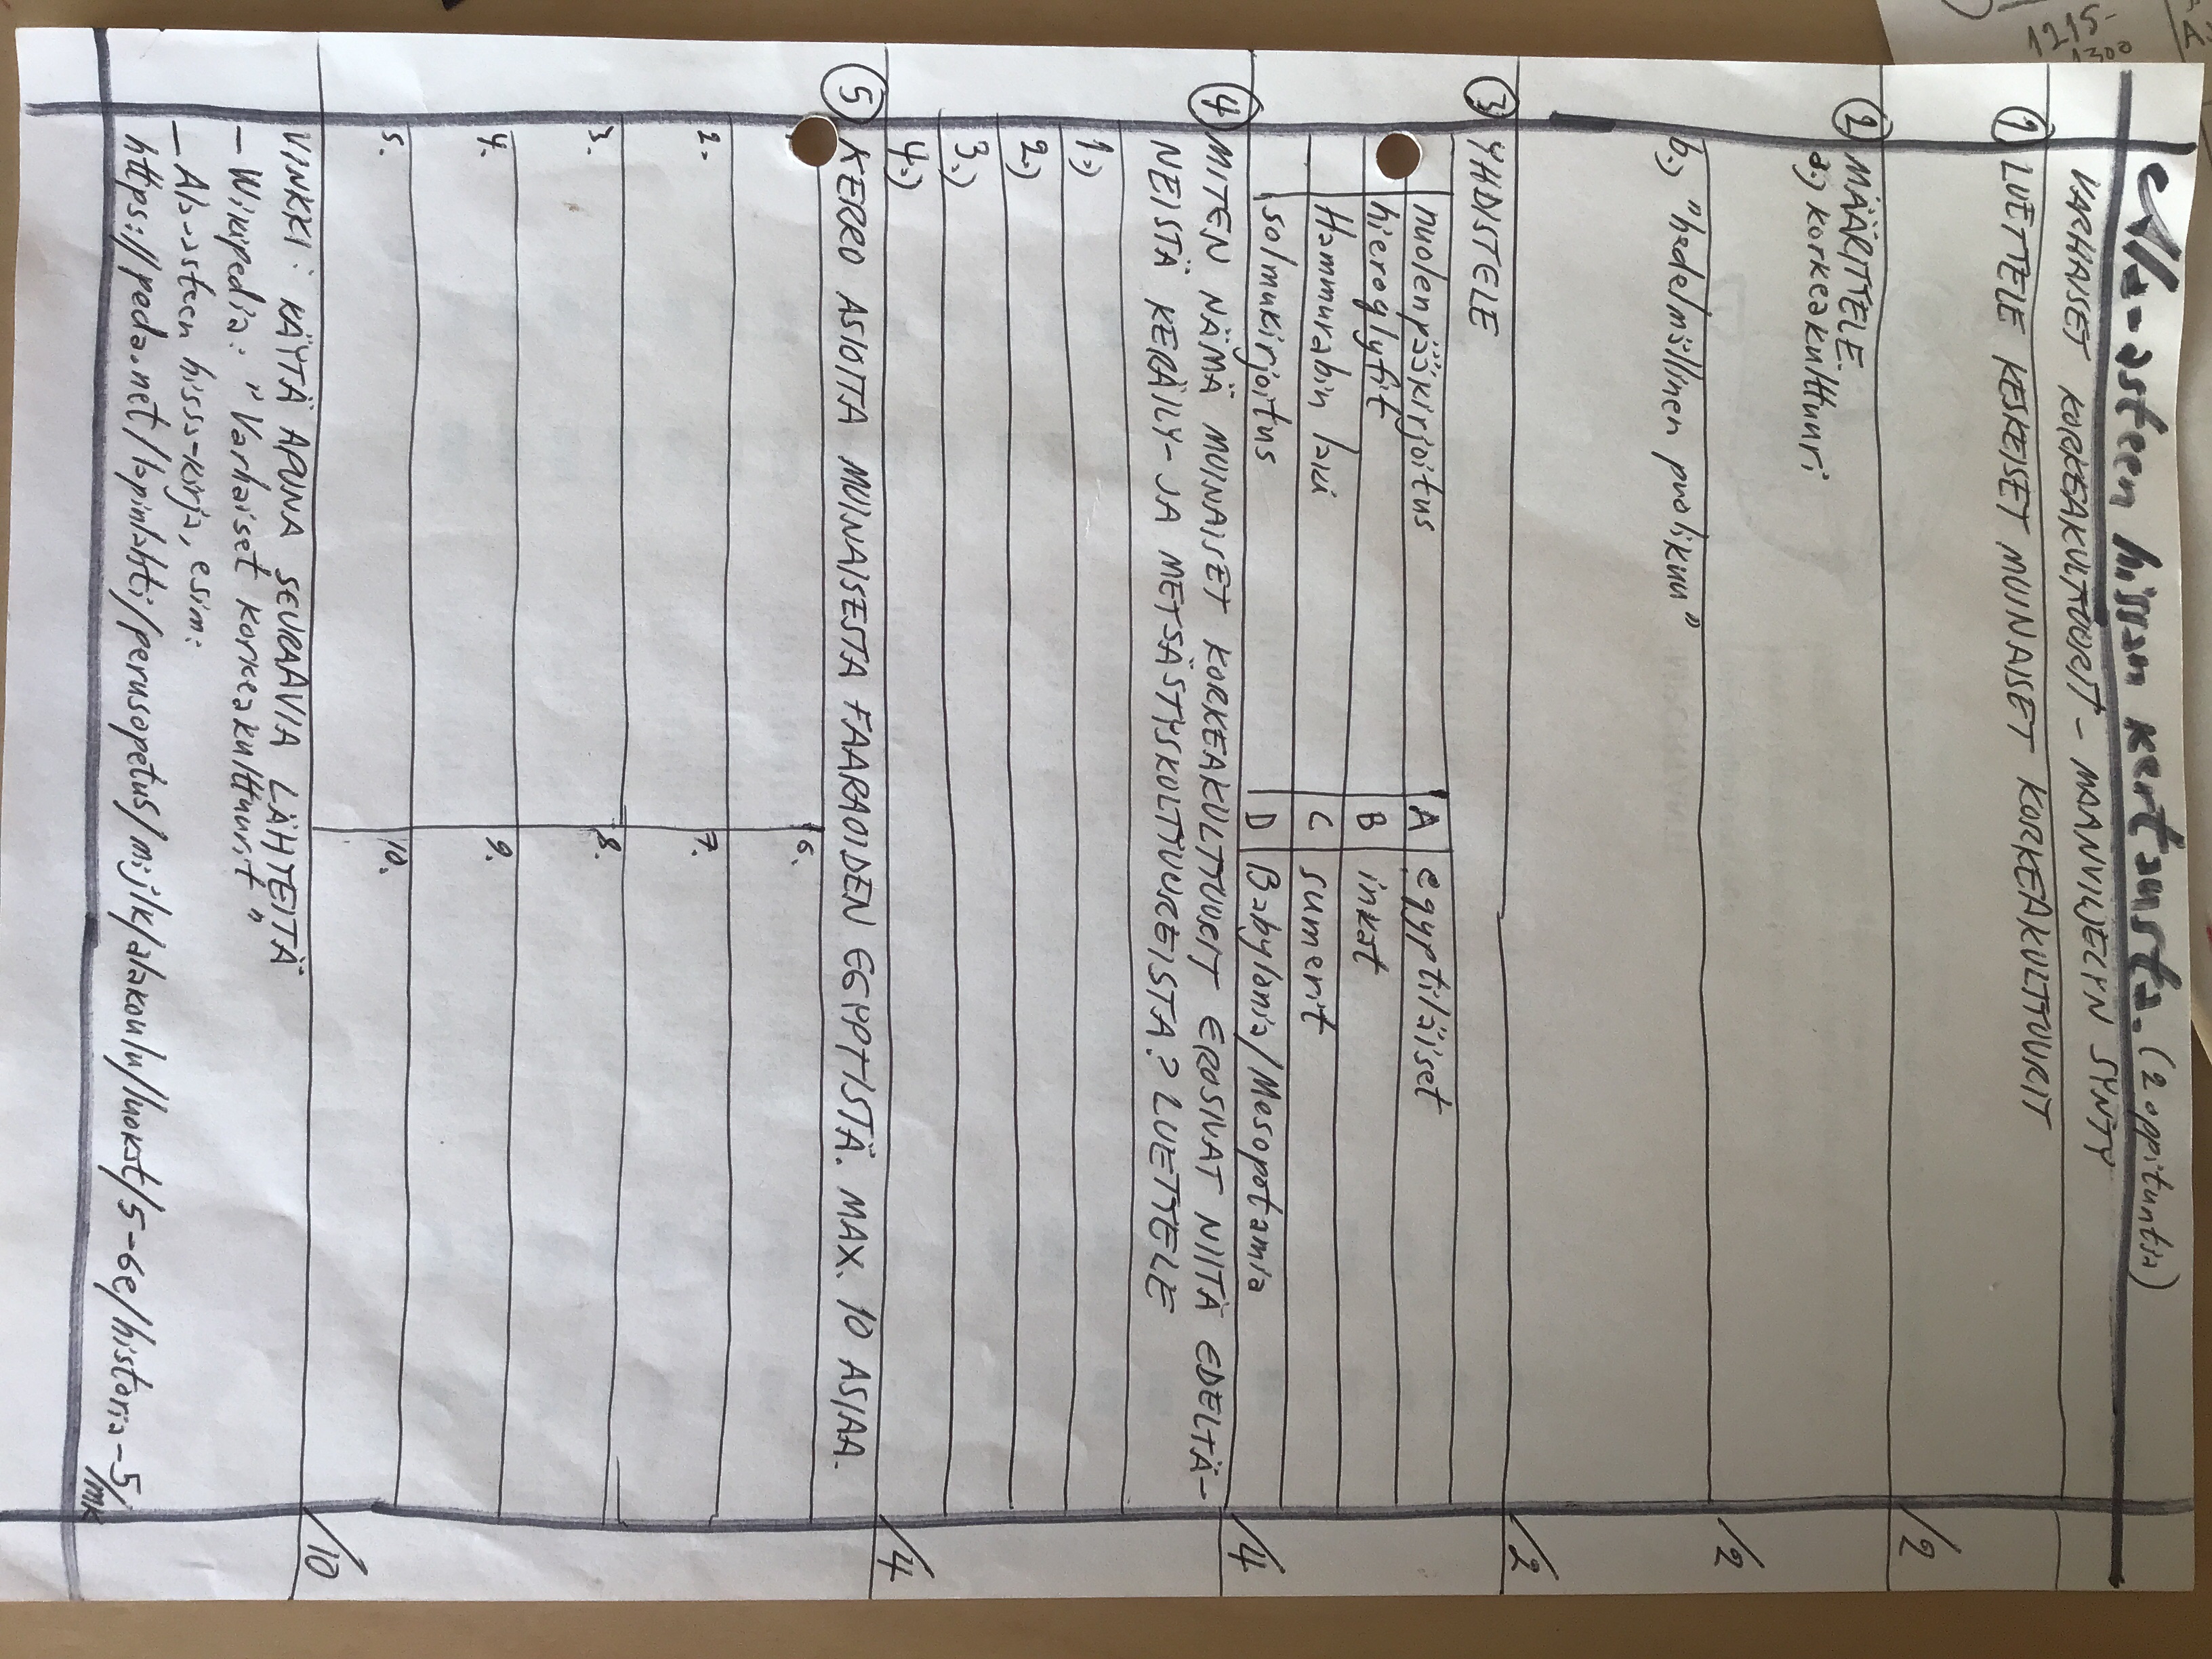 Ala-asteen hissan kertausta. (2 oppituntia)
VARHAISET KORKEAKULTTUURIT - MAANVILJELYN SYNTY
1 LUETTELE KESKEISET MUINAISET KORKEAKULTTUURIT
/2
2 MÄÄRITELE
a.) korkeakulttuuri
/2
b.) "hedelmällinen puolikuu"
/2
3 YHDISTELE
nuolenpääkirjoitus A egyptiläiset
hieroglyfit B inkat
Hammurabin laki C sumerit
solmukirjoitus D Babylonia/Mesopotamia
/4
4 MITEN NÄMÄ MUINAISET KORKEAKULTTUURIT EROSIVAT NIITÄ EDELTÄ-
NEISTÄ KERÄILY- JA METSÄSTYSKULTTUUREISTA? LUETTELE
1.)
2.)
3.)
4.)
/4
5 KERRO ASIOITA MUINAISESTA FAARAOIDEN EGYPTISTÄ. MAX. 10 ASIAA.
6.
2. 7.
3. 8.
4. 9.
5. 10.
/10
VINKKI: KÄYTÄ APUNA SEURAAVIA LÄHTEITÄ
- Wikipedia: "Varhaiset korkeakulttuurit"
- Ala-asteen hissa-kirja, esim:
https://peda.net/lapinlahti/perusopetus/mjjk/alakoulu/luokat/5-6e/historia-5
/mk
1215-
1300